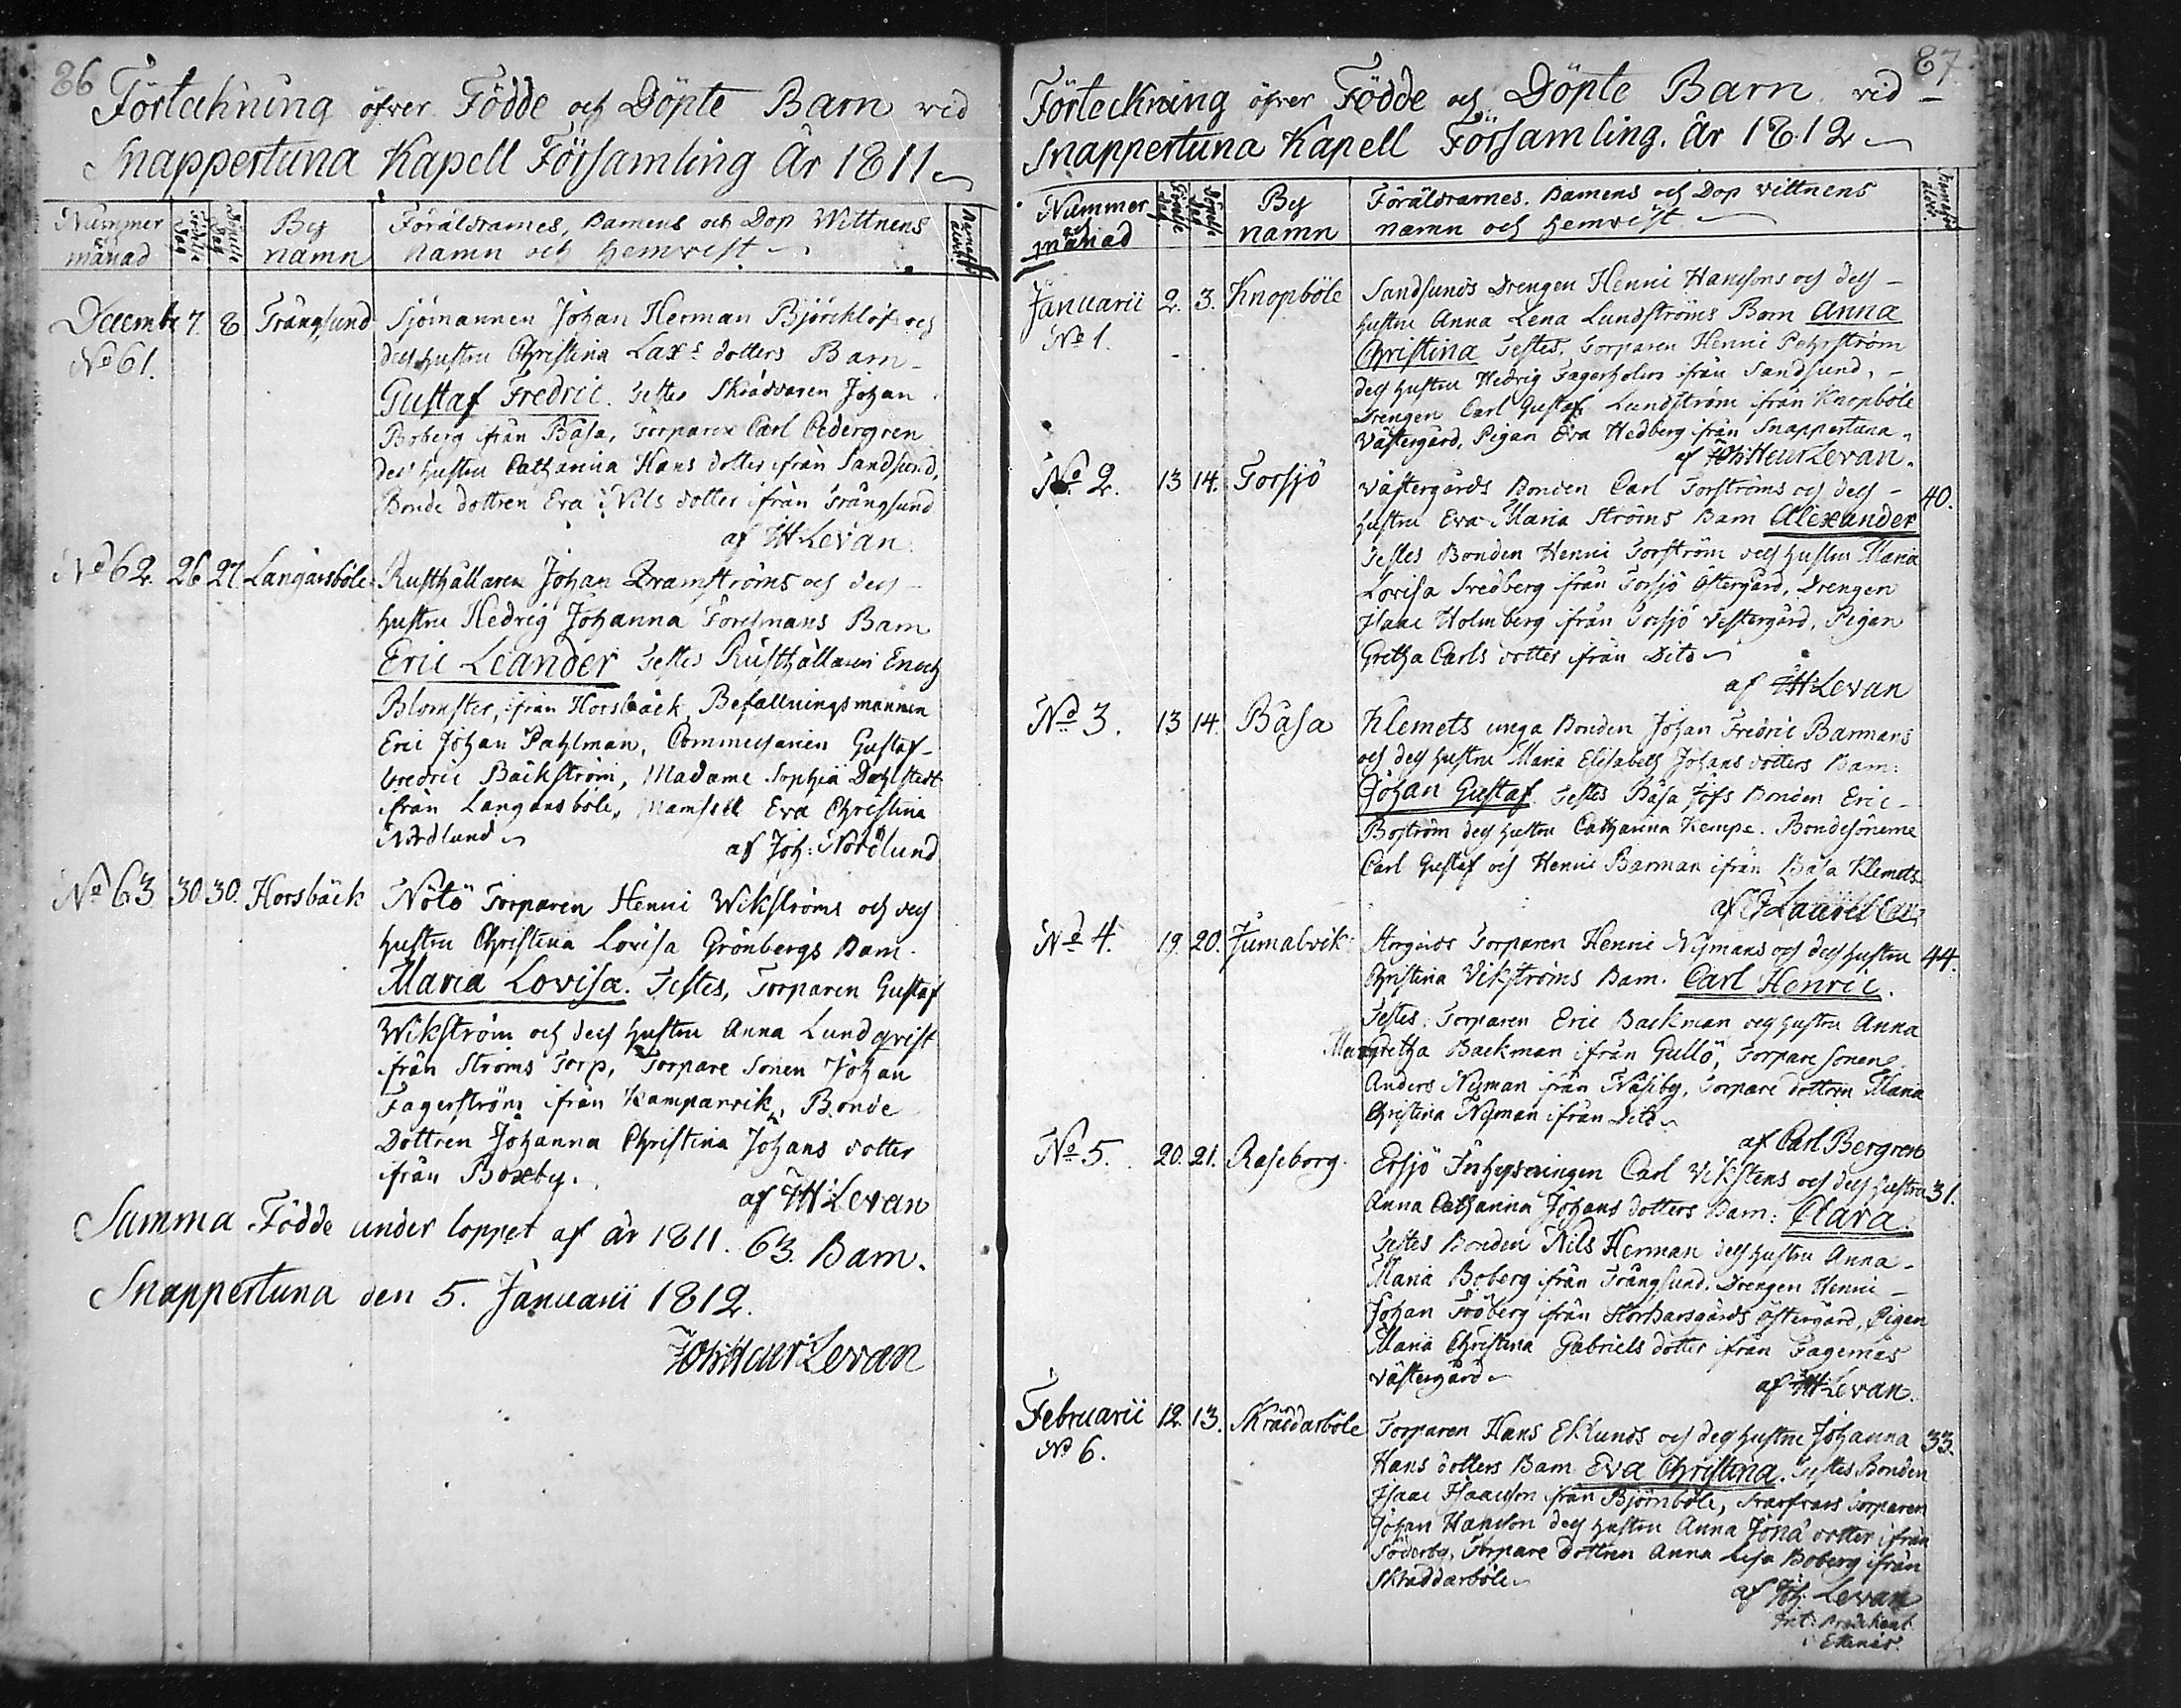 86
Förteckning öfver Födde och Döpte Barn vid
Snappertuna Kapell Församling År 1811
Nummer månad
Födelse dag
Döpelse dag
By namn
Föräldrarnes, Barnens och Dop Wittnens
Namn och hemvist
Decembr 7. 8 Trångsund Sjömannen Johan Herman Björcklöfs och
No 61. dess hustru Christina Laxs dotters Barn
Gustaf Fredric. Testes Skräddaren Johan
Boberg ifrån Båsa, Torparen Carl Cedergren
dess hustru Catharina Hans dotter ifrån Sandsund,
Bonde dottren Eva Nils dotter ifrån Trångsund
af JH Levan.
No 62. 26 27. Langansböle Rusthållaren Johan Bramströms och dess
hustru Hedvig Johanna Forsmans Barn
Eric Leander Testes Rusthållaren Enoch
Blomster, ifrån Horsbäck, Befallningsmannen
Eric Johan Pahlman, Commissarien Gustaf
Fredric Bäckström, Madame Sophia Dahlstedt
ifrån Langansböle, Mamsell Eva Christina
Nordlund
af Joh: Nordlund
No 63 30 30. Horsbäck Nötö Torparen Henric Wikströms och dess
hustru Christina Lovisa Grönbergs Barn.
Maria Lovisa. Testes, Torparen Gustaf
Wikström och dess hustru Anna Lundqvist
ifrån Ströms Torp, Torpare Sonen Johan
Fagerström ifrån Kampanvik, Bonde
Dottren Johanna Christina Johans dotter
ifrån Boxby.
af JH Levan
Summa Födde under loppet af år 1811. 63. Barn.
Snappertuna den 5. Januarii 1812.
Joh Henr Levan
87.
Förteckning öfver Födde och Döpte Barn vid
Snappertuna Kapell Församling. År 1812
Nummer och månad
Födelse dag
Döpelse dag
By namn
Föräldrarnes, Barnens och Dop vittnens
namn och hemvist
Januarii 2. 3. Knopböle Sandsunds Drengen Henric Hanssons och dess
No 1. hustru Anna Lena Lundströms Barn Anna
Christina Testes. Torparen Henric Pehrström
dess hustru Hedvig Fagerholm ifrån Sandsund,
Drengen Carl Gustaf Lundström ifrån Knopböle
Västergård, Pigan Eva Hedberg ifrån Snappertuna.
af Joh Henr Levan.
No 2. 13 14. Torsjö Västergårds Bonden Carl Torströms och dess 40.
hustru Eva Maria Ströms Barn Alexander
Testes Bonden Henric Torström dess hustru Maria
Lovisa Sredberg ifrån Torsjö Östergård, Drengen
Isaac Holmberg ifrån Torsjö Vestergård, Pigan
Gretha Carls dotter ifrån Dito
af JH Levan
No 3. 13 14. Båsa Klemets unga Bonden Johan Fredric Barmans
och dess hustru Maria Elisabeth Johans dotters Barn:
Johan Gustaf. Testes Båsa Jöfs Bonden Eric
Boström dess hustru Catharina Kempe. Bondesönerne
Carl Gustaf och Henric Barman ifrån Båsa Klemets
No 4. 19. 20. Jumalvik Torparen Henric Nymans och dess hustru 44.
Christina Vikströms Barn. Carl Henric.
Testes. Torparen Eric Backman dess hustru Anna
Margretha Backman ifrån Gullö, Torpare sonen
Anders Nyman ifrån Näseby, Torpare dottren Maria
Christina Nyman ifrån Dito
af Carl Bergren
No 5. 20. 21. Raseborg. Ersjö Inhysingen Carl Vikstens och dess hustru 31.
Anna Catharina Johans dotters Barn: Clara.
Testes Bonden Nils Herman dess hustru Anna
Maria Boberg ifrån Trångsund. Drengen Henric
Johan Fröberg ifrån Östergård, Pigan
Maria Christina Gabriels dotter ifrån Fagernäs
Västergård
af JH Levan.
Februarii 12. 13. Skräddarböle Torparen Hans Eklunds och dess hustru Johanna 33.
No 6. Hans dotters Barn Eva Christina. Testes Bonden
Isaac Isaacsson ifrån Björnböle, Torparen
Johan Hansson dess hustru Anna Jona dotter ifrån
Söderby, Torpare dottren Anna Lisa Boberg ifrån
Skräddarböle
af Joh: Levan